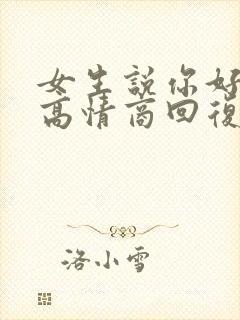 女生說你好
高情商回復
洛小雪